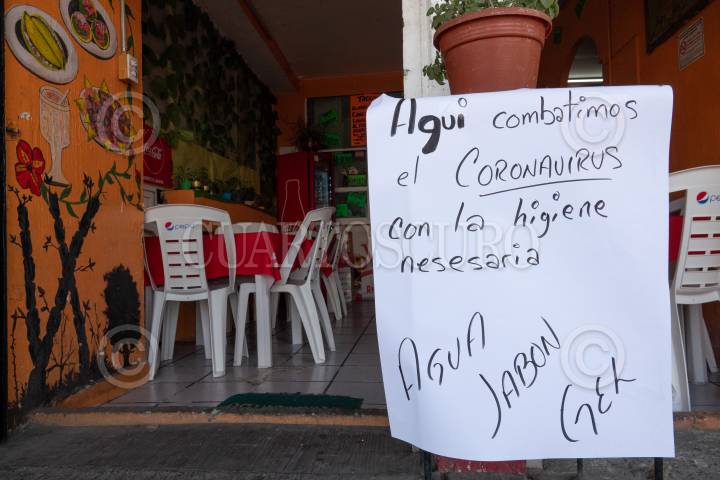 Aqui combatimos
el CORONAVIRUS
con la higiene
nesesaria
AGUA
JABON
GEL
pepsi
pepsi
CUARTOSCURO